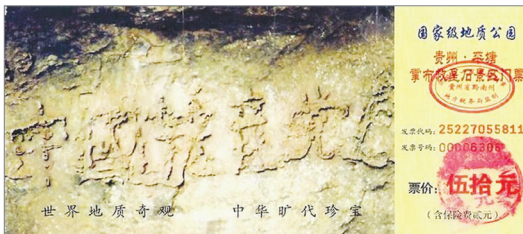 中國共产党
世界地质奇观 中华旷代珍宝
国家级地质公园
贵州·平塘
掌布救星石景区门票
贵州省黔南州
地方税务局监制
发票代码: 25227055811
发票号码: 00006306
票价: 伍拾元
(含保险费贰元)